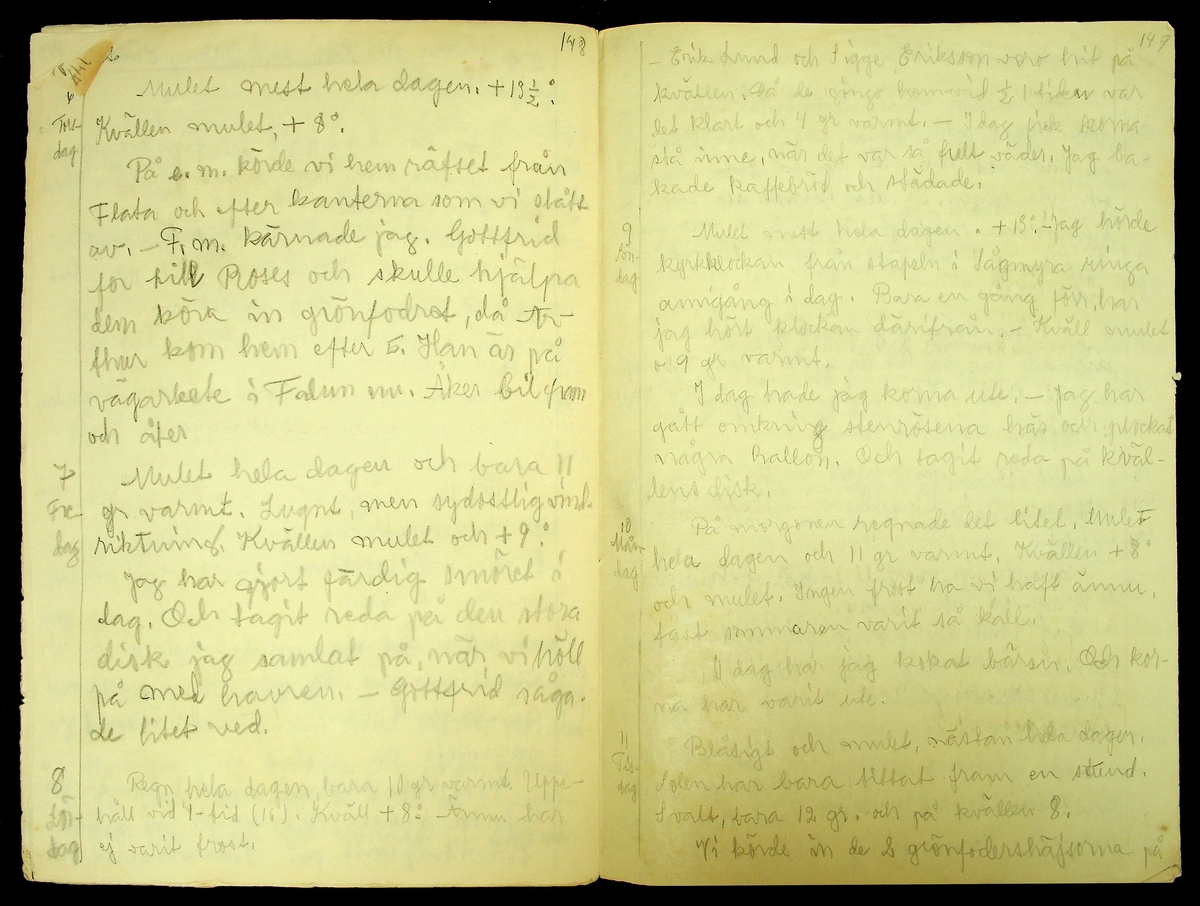 148
6
Tors-
dag
Mulet mest hela dagen. + 13 ½°.
Kvällen mulet, + 8°.
På e. m. körde vi hem räfset från
Flata och efter kanterna som vi slått
av. — F. m. kärnade jag. Gottfrid
for till Roses och skulle hjälpa
dem köra in grönfodret, då Ar-
thur kom hem efter 5. Han är på
vägarbete i Falun nu. Åker bil fram
och åter
7
Fre-
dag
Mulet hela dagen och bara 11
gr varmt. Lugnt, men sydostlig vind-
riktning. Kvällen mulet och + 9°.
Jag har gjort färdig smöret i
dag. Och tagit reda på den stora
disk jag samlat på, när vi höll
på med havren. — Gottfrid såga-
de litet ved.
8
Lör-
dag
Regn hela dagen, bara 10 gr varmt. Uppe-
håll vid 4-tid (16). Kväll + 8°. Ännu har
ej varit frost.
149
— Erik Lund och Sigge Eriksson voro hit på
kvällen. Då de gingo hem vid ½ 1 tiden var
det klart och 4 gr varmt. — I dag fick korna
stå inne, när det var så fult väder. Jag ba-
kade kaffebröd och städade.
9
Sön-
dag
Mulet mest hela dagen. + 13°. — Jag hörde
kyrkklockan från stapeln i Sågmyra ringa
en gång i dag. Bara en gång förr har
jag hört klockan därifrån. — Kväll mulet
o 9 gr varmt.
I dag hade jag korna ute. — Jag har
gått omkring stenrösena här och plockat
några hallon. Och tagit reda på kväl-
lens disk.
10
Mån-
dag
På morgonen regnade det litet. Mulet
hela dagen och 11 gr varmt. Kvällen + 8°
och mulet. Ingen frost ha vi haft ännu,
fast sommaren varit så kall.
I dag har jag kokat bärsin. Och kor-
na har varit ute.
11
Tis-
dag
Blåsigt och mulet, nästan hela dagen.
Solen har bara tittat fram en stund.
Svalt, bara 12 gr. och på kvällen 8.
Vi körde in de 2 grönfodershäsjorna på